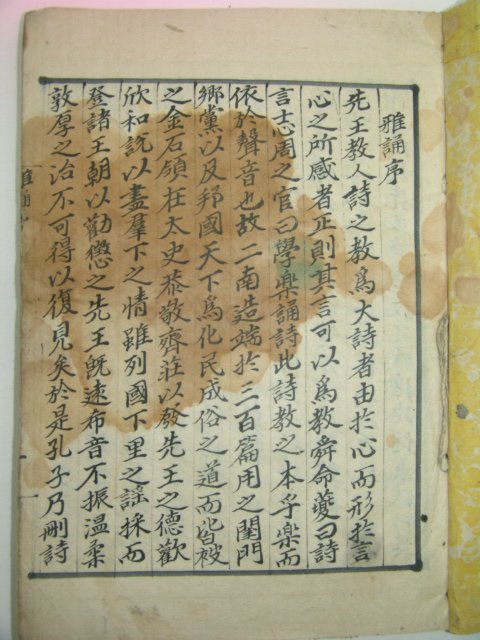 雅誦序
先王教人詩之教爲大詩者由於心而形於言
心之所感者正則其言可以爲教舜命夔曰詩
言志周之官曰學樂誦詩此詩教之本乎樂而
依於聲音也故二南造端於三百篇用之閨門
鄉黨以及邦國天下爲化民成俗之道而皆被
之金石領在太史恭敬齊莊以發先王之德歡
欣和說以盡羣下之情雖列國下里之謠採而
登諸王朝以勸懲之先王旣遠希音不振溫柔
敦厚之治不可得以復見矣於是孔子乃刪詩